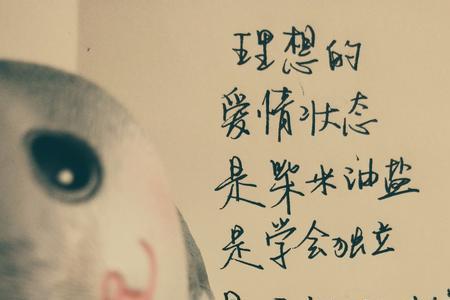 理想的
爱情状态
是柴米油盐
是学会独立